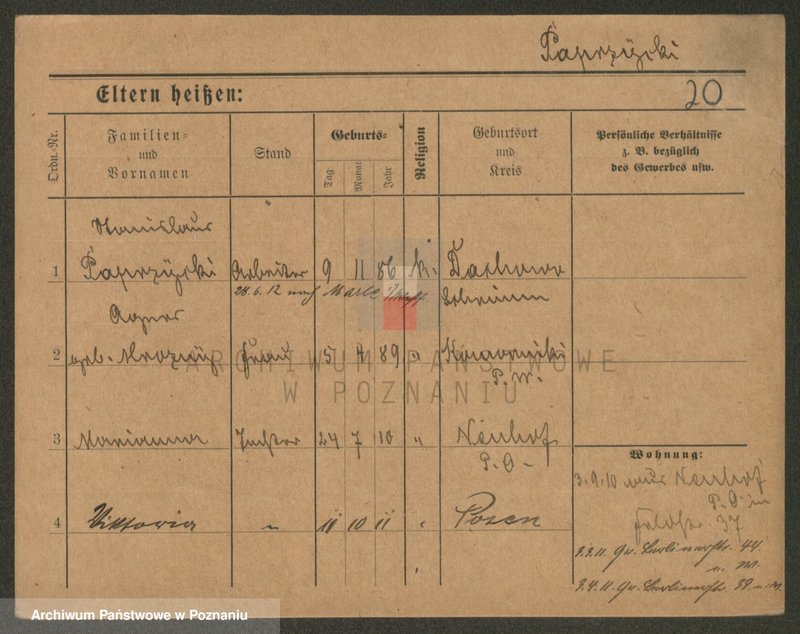 Paprzycki
Eltern heißen:
20
Ordn.-Nr.
Familien-
und
Vornamen
Stand
Geburts-
Tag
Monat
Jahr
Religion
Geburtsort
und
Kreis
Persönliche Verhältnisse
z. B. bezüglich
des Gewerbes usw.
Stanislaus
1 Paprzycki Arbeiter 9 11 86 k. Dachowo
28.6.12 nach Marl Schrimm
Agnes
2 geb. Frau 5 4 89 " Komorniki
P. W.
3 Marianna Tochter 24 7 10 " Neuhof
P. O.
4 Viktoria " 11 10 11 " Posen
Wohnung:
3.9.10 aus Neuhof
P. O. in
Feldstr. 37
3.3.11 Gr. Berlinerstr. 44
u. W.
3.4.11 Gr. Berlinerstr. 38 u. W.
ARCHIWUM PAŃSTWOWE
W POZNANIU
Archiwum Państwowe w Poznaniu